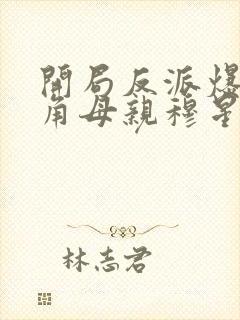 開局反派爆
角母親穆星
林志君